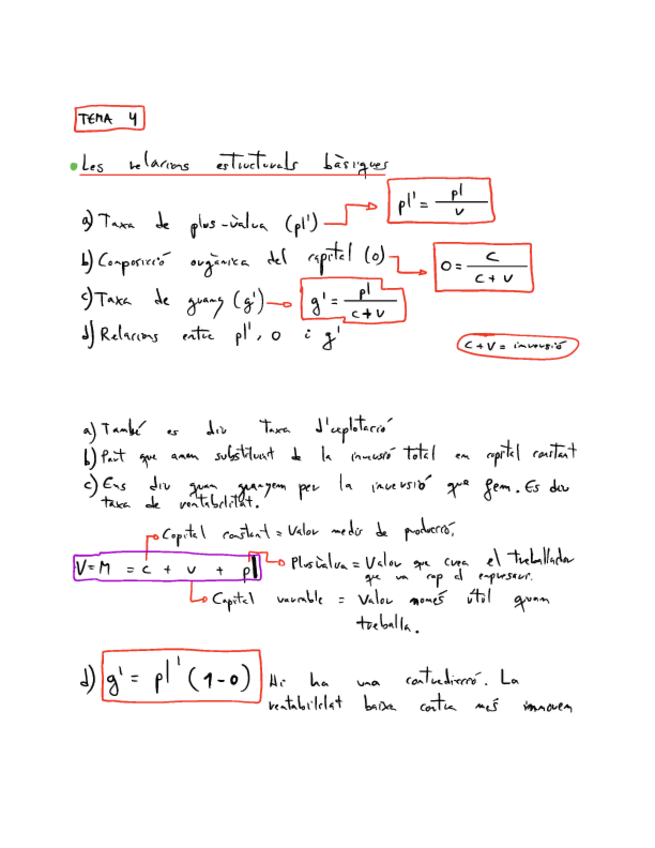 TEMA 4
Les relacions estructurals bàsiques
a) Taxa de plus-vàlua (pl') → pl' = pl / v
b) Composicció orgànica del capital (o) → O = c / c + v
c) Taxa de guany (g') → g' = pl / c + v
d) Relacions entre pl', o i g'
C + V = inversió
a) També es diu taxa d'explotació
b) Part que anem substituint de la inversió total en capital constant
c) Ens diu quan guanyem per la inversió que fem. Es diu
taxa de rentabilitat.
Capital constant = Valor medis de producció.
V = M = c + v + pl
Plusvàlua = Valor que crea el treballador
que va cap al empresari.
Capital variable = Valor només útil quan
treballa.
d) g' = pl' (1 - o) Hi ha una contradicció. La
rentabilitat baixa contra més innovem